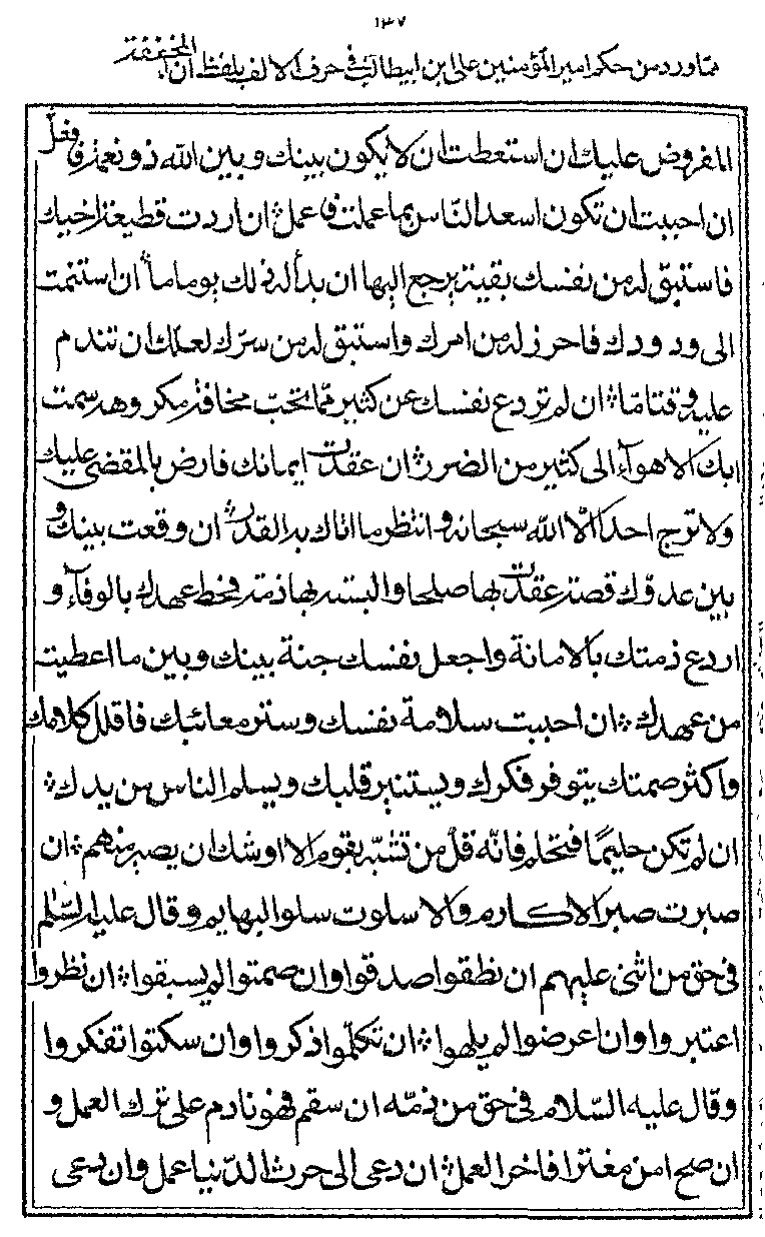 ١٣٧
مما ورد من حكم امير المؤمنين على ابن ابيطالب فى حرف الالف بلفظ ان المخففة
المفروض عليك ان استطعت ان لا يكون بينك وبين الله ذو نعمة فافعل
ان احببت ان تكون اسعد الناس بما علمت فاعمل ان اردت قطيعة اخيك
فاستبق له من نفسك بقية يرجع اليها ان بدأ له ذلك يوما ما ان استنمت
الى ودودك فاحرز له من امرك واستبق له من سرك لعلك ان تندم
عليه وقتا ما ان لم تردع نفسك عن كثير مما تحب مخافة مكروهه سمت
بك الاهوآء الى كثير من الضرر ان عقدت ايمانك فارض بالمقضى عليك
ولا ترج احدا الا الله سبحانه وانتظر ما اتاك به القدر ان وقعت بينك و
بين عدوك قصة عقدت بها صلحا والبسته بها ذمة فحط عهدك بالوفآء و
اردع ذمتك بالامانة واجعل نفسك جنة بينك وبين ما اعطيت
من عهدك ان احببت سلامة نفسك وستر معائبك فاقلل كلامك
واكثر صمتك يتوفر فكرك ويستنير قلبك ويسلم الناس من يدك
ان لم تكن حليما فتحلم فانه قل من تشبه بقوم الا اوشك ان يصير منهم ان
صبرت صبر الاكارم والا سلوت سلو البهايم وقال عليه السلم
فى حق من اثنى عليهم ان نطقوا صدقوا وان صمتوا لم يسبقوا ان نظروا
اعتبروا وان اعرضوا لم يلهوا ان تكلموا ذكروا وان سكتوا تفكروا
وقال عليه السلام فى حق من ذمه ان سقم فهو نادم على ترك العمل و
ان صح امن مغترا فاخر العمل ان دعى الى حرث الدنيا عمل وان دعى